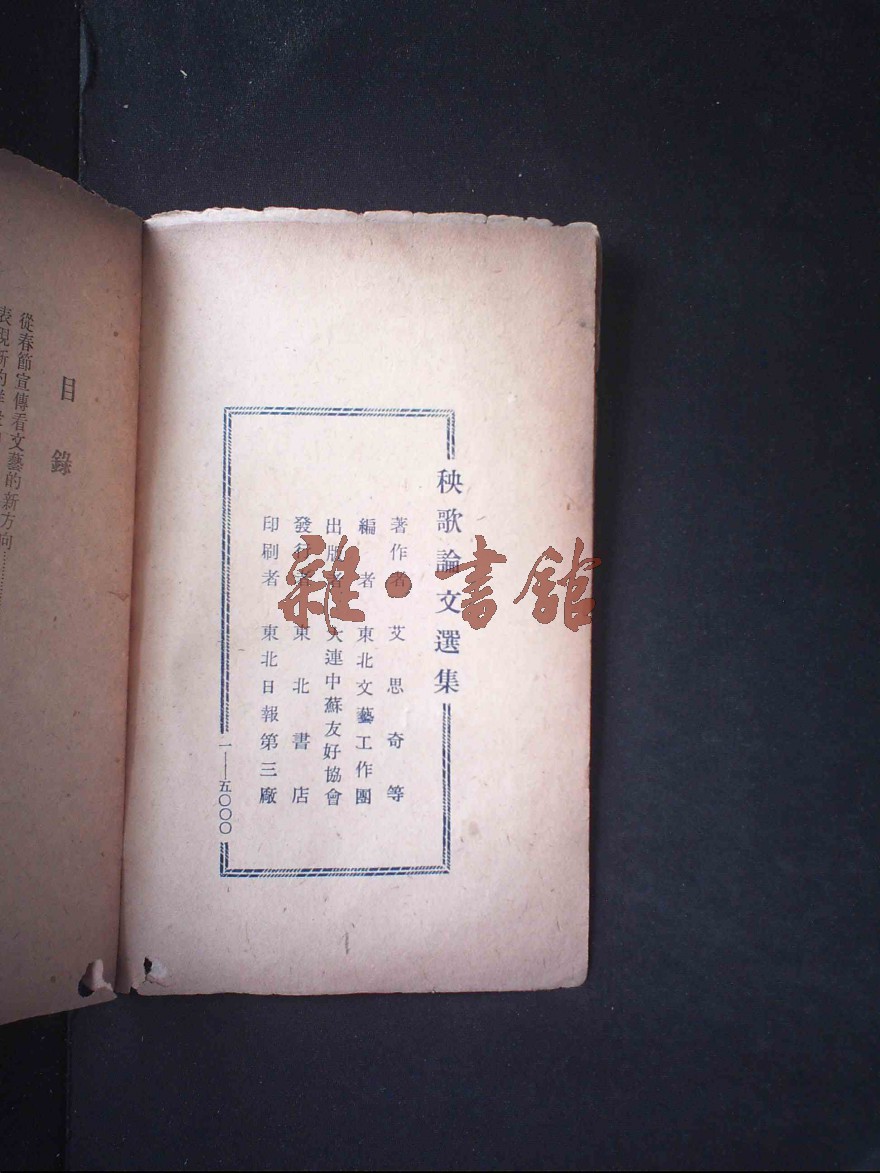 秧歌論文選集
著作者 艾思奇等
編者 東北文藝工作團
出版者 大連中蘇友好協會
發行者 東北書店
印刷者 東北日報第三廠
一——五〇〇〇
目錄
從春節宣傳看文藝的新方向…………
表現新的
雜·書館